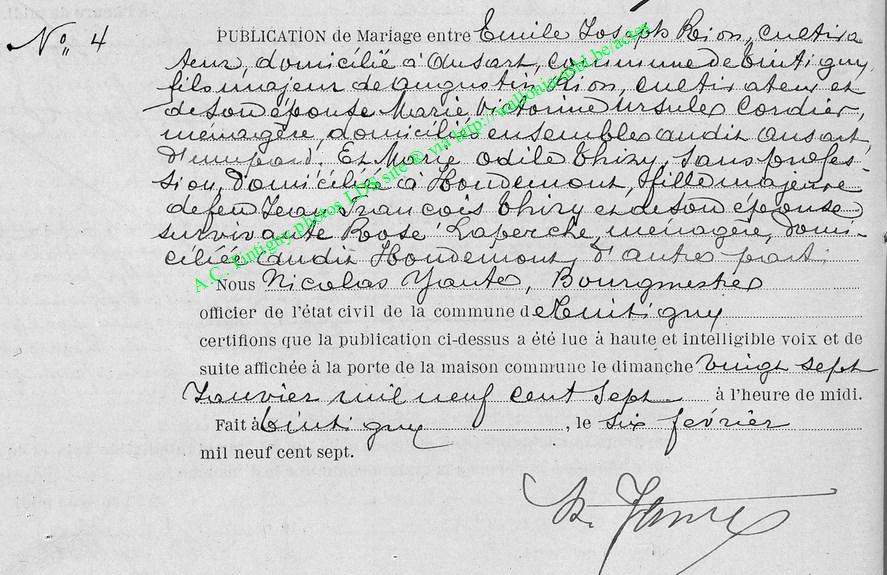 Nº 4
PUBLICATION de Mariage entre Emile Joseph Rion, cultiva
teur, domicilié à Ansart, commune de Tintigny,
fils majeur de Augustin Rion, cultivateur et
de son épouse Marie Victorine Ursule Cordier,
ménagère, domiciliés ensemble audit Ansart,
d'une part. Et Marie Odile Thiry, sans profes-
sion, domiciliée à Houdemont, fille majeure
de feu Jean François Thiry et de son épouse
survivante Rose Laperche, ménagère, domi-
ciliée audit Houdemont, d'autre part.
Nous Nicolas Bourgmestre
officier de l'état civil de la commune de Tintigny
certifions que la publication ci-dessus a été lue à haute et intelligible voix et de
suite affichée à la porte de la maison commune le dimanche vingt sept
Janvier mil neuf cent sept à l'heure de midi.
Fait à Tintigny, le six février
mil neuf cent sept.
A.C. Tintigny photos LDS site © via http://wallonia-asbl.be/actes